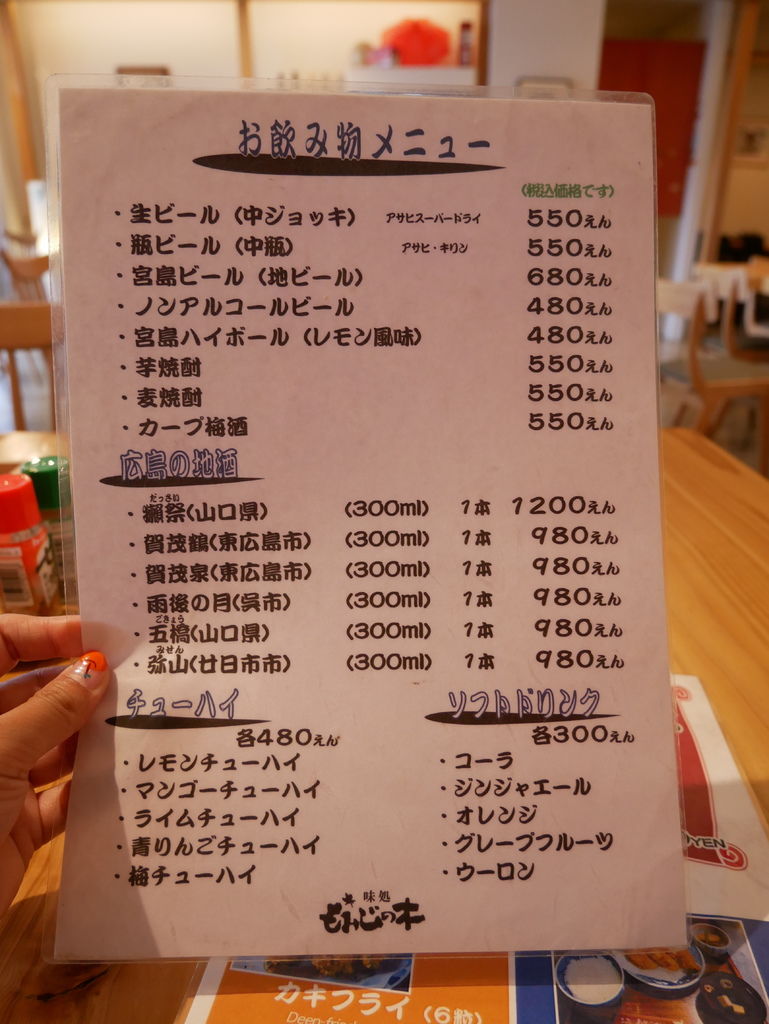 お飲み物メニュー
(税込価格です)
・生ビール (中ジョッキ) アサヒスーパードライ 550えん
・瓶ビール (中瓶) アサヒ・キリン 550えん
・宮島ビール (地ビール) 680えん
・ノンアルコールビール 480えん
・宮島ハイボール (レモン風味) 480えん
・芋焼酎 550えん
・麦焼酎 550えん
・カープ梅酒 550えん
広島の地酒
だっさい
・獺祭(山口県) (300ml) 1本 1200えん
・賀茂鶴(東広島市) (300ml) 1本 980えん
・賀茂泉(東広島市) (300ml) 1本 980えん
・雨後の月(呉市) (300ml) 1本 980えん
ごきょう
・五橋(山口県) (300ml) 1本 980えん
みせん
・弥山(廿日市市) (300ml) 1本 980えん
チューハイ
各480えん
・レモンチューハイ
・マンゴーチューハイ
・ライムチューハイ
・青りんごチューハイ
・梅チューハイ
ソフトドリンク
各300えん
・コーラ
・ジンジャエール
・オレンジ
・グレープフルーツ
・ウーロン
味処
もみじの木
カキフライ (6粒)